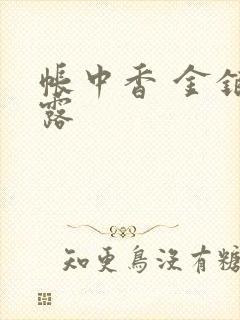 帳中香 金
露
知更鳥沒有糖